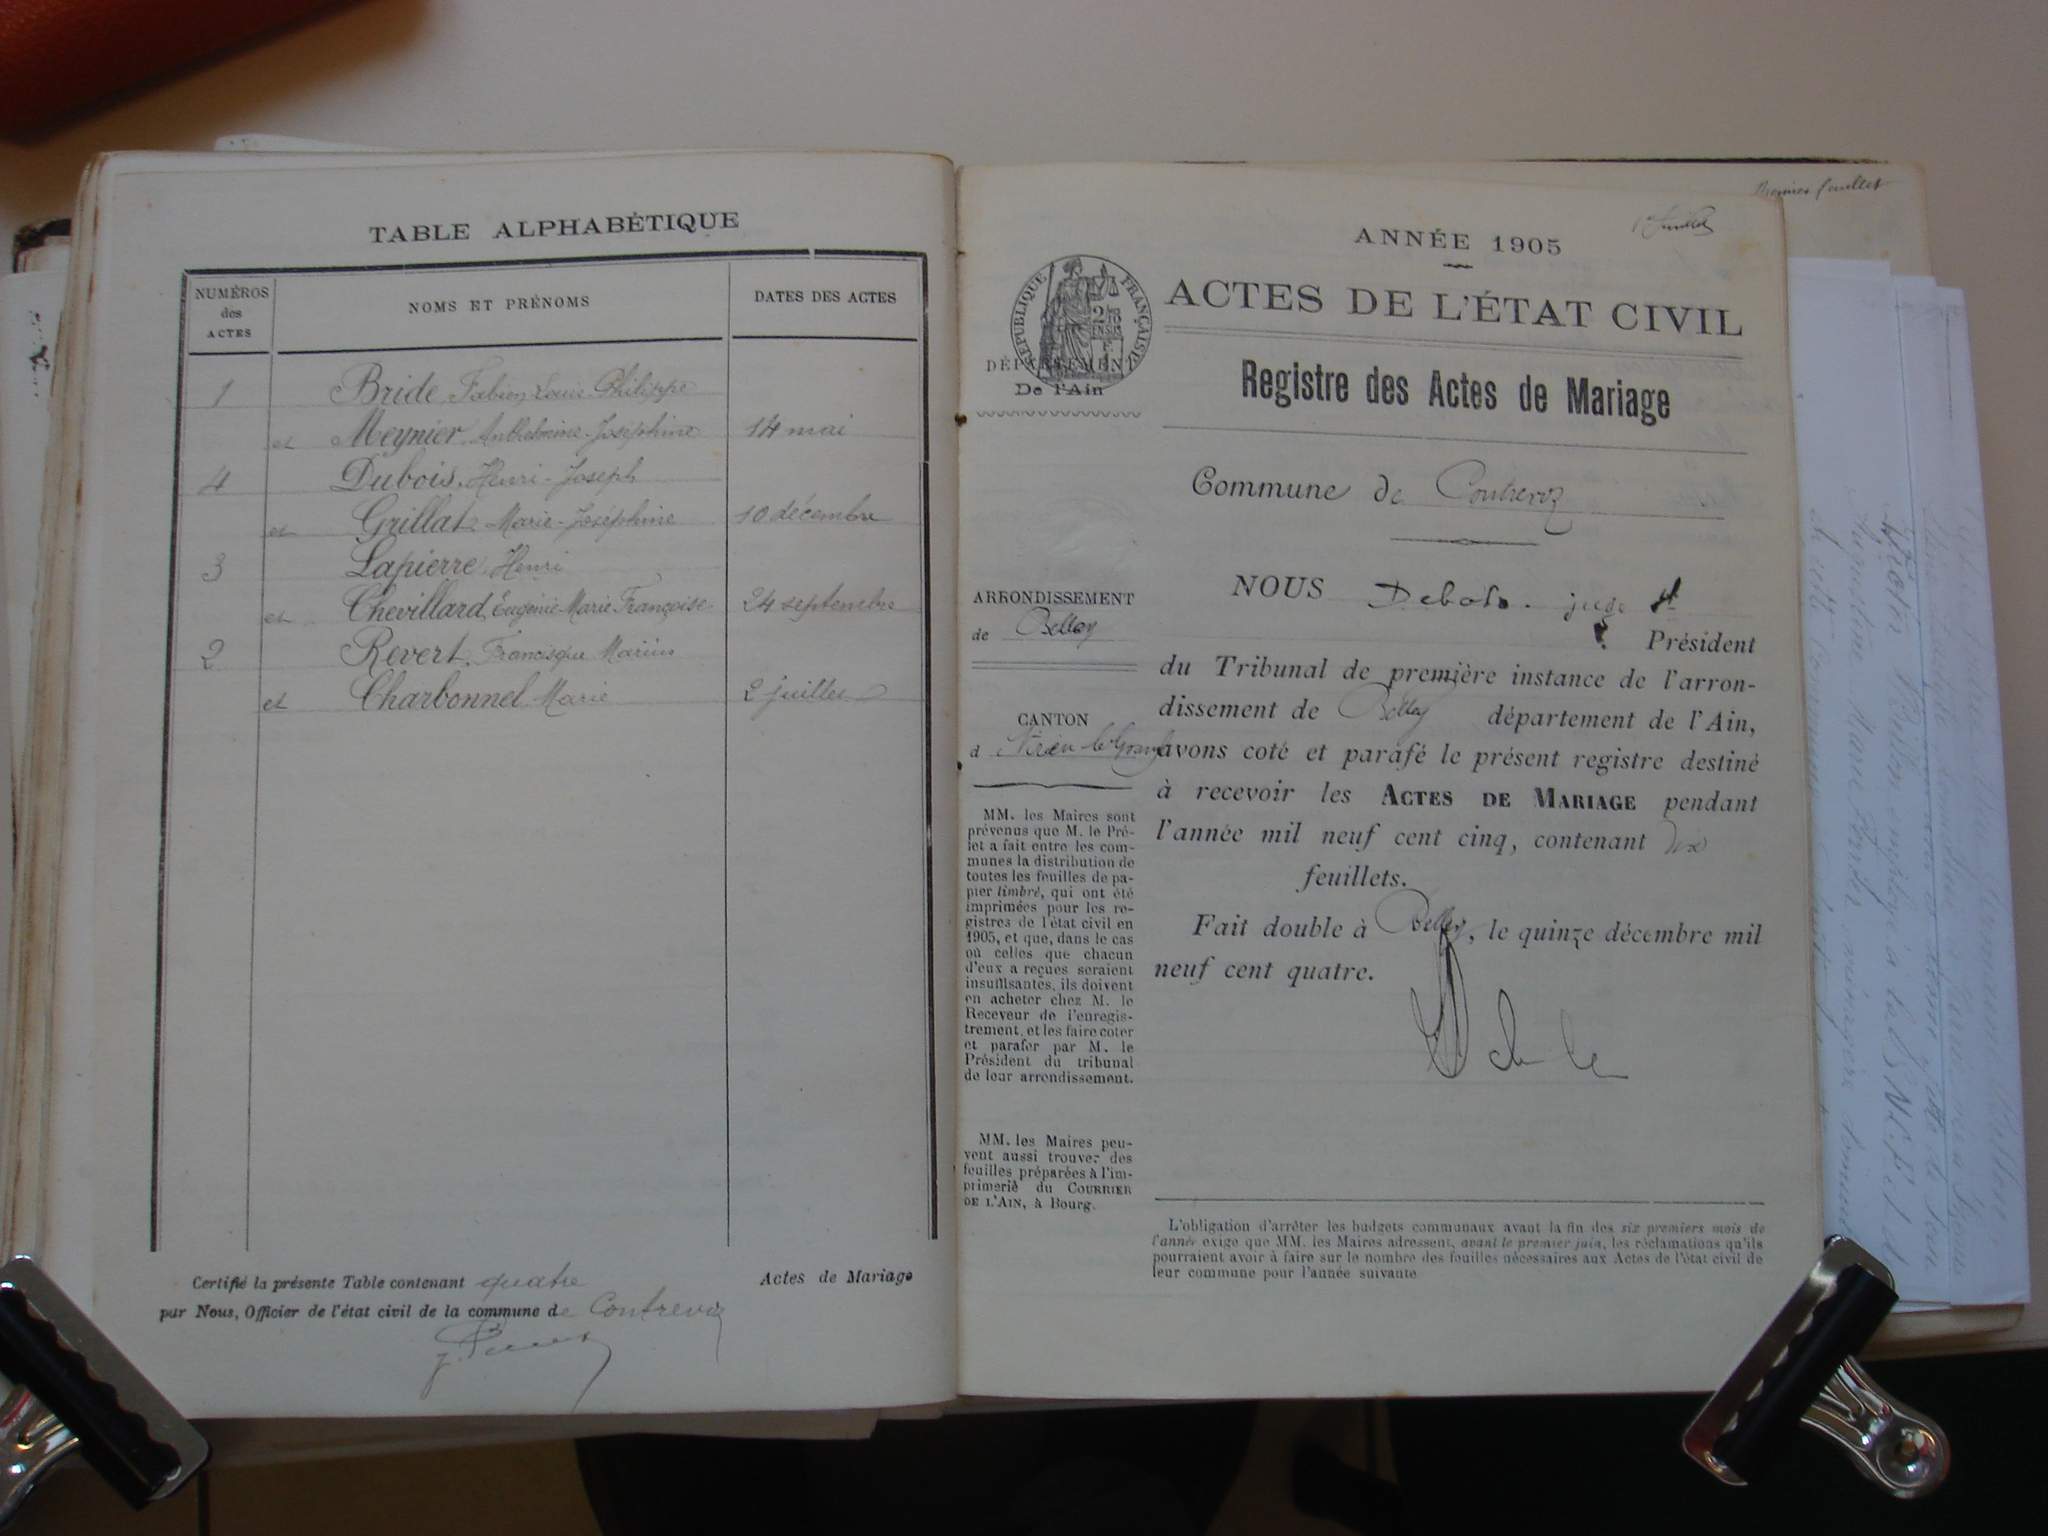 TABLE ALPHABÉTIQUE
NUMÉROS
des
ACTES
NOMS ET PRÉNOMS
DATES DES ACTES
1 Bride, Fabien Louis Philippe
et Meynier, Anthelmine-Joséphine 14 mai
4 Dubois, Henri-Joseph
et Grillat, Marie-Joséphine 10 décembre
3 Lapierre, Henri
et Chevillard, Eugénie-Marie-Françoise 24 septembre
2 Revert, Francisque Marius
et Charbonnel Marie 2 juillet
Certifié la présente Table contenant quatre Actes de Mariage
par Nous, Officier de l'état civil de la commune de Contrevoz
Premier feuillet
ANNÉE 1905
RÉPUBLIQUE FRANÇAISE
ACTES DE L'ÉTAT CIVIL
DÉPARTEMENT
De l'Ain
Registre des Actes de Mariage
Commune de Contrevoz
ARRONDISSEMENT
de Belley
CANTON
d Virieu le Grand
MM. les Maires sont
prévenus que M. le Pré-
fet a fait entre les com-
munes la distribution de
toutes les feuilles de pa-
pier timbré, qui ont été
imprimées pour les re-
gistres de l'état civil en
1905, et que, dans le cas
où celles que chacun
d'eux a reçues seraient
insuffisantes, ils doivent
en acheter chez M. le
Receveur de l'enregis-
trement, et les faire coter
et parafer par M. le
Président du tribunal
de leur arrondissement.
MM. les Maires peu-
vent aussi trouver des
feuilles préparées à l'im-
primerie du COURRIER
DE L'AIN, à Bourg.
NOUS juge
Président
du Tribunal de première instance de l'arron-
dissement de Belley département de l'Ain,
avons coté et parafé le présent registre destiné
à recevoir les ACTES DE MARIAGE pendant
l'année mil neuf cent cinq, contenant dix
feuillets.
Fait double à Belley, le quinze décembre mil
neuf cent quatre.
L'obligation d'arrêter les budgets communaux avant la fin des six premiers mois de
l'année exige que MM. les Maires adressent, avant le premier juin, les réclamations qu'ils
pourraient avoir à faire sur le nombre des feuilles nécessaires aux Actes de l'état civil de
leur commune pour l'année suivante